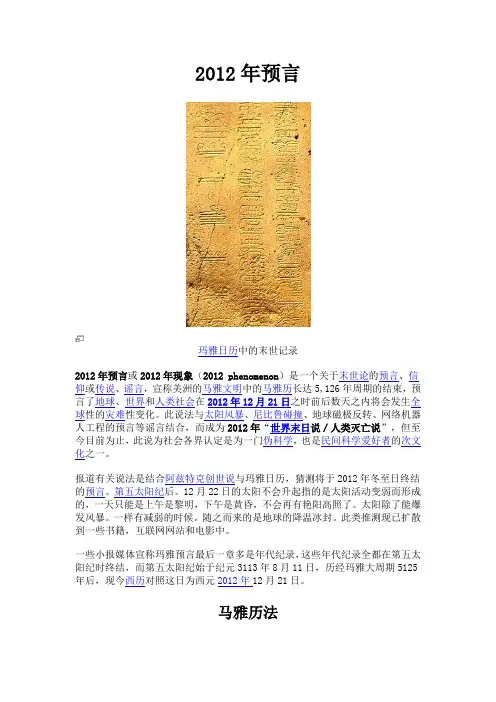 2012年预言
玛雅日历中的末世记录
2012年预言或2012年现象（2012 phenomenon）是一个关于末世论的预言、信
仰或传说、谣言，宣称美洲的玛雅文明中的玛雅历长达5,126年周期的结束，预
言了地球、世界和人类社会在2012年12月21日之时前后数天之内将会发生全
球性的灾难性变化。此说法与太阳风暴、尼比鲁碰撞、地球磁极反转、网络机器
人工程的预言等谣言结合，而成为2012年“世界末日说／人类灭亡说”，但至
今目前为止，此说为社会各界认定是为一门伪科学，也是民间科学爱好者的次文
化之一。
报道有关说法是结合阿兹特克创世说与玛雅日历，猜测将于2012年冬至日终结
的预言。第五太阳纪后。12月22日的太阳不会升起指的是太阳活动变弱而形成
的，一天只能是上午是黎明，下午是黄昏，不会再有艳阳高照了。太阳除了能爆
发风暴。一样有减弱的时候。随之而来的是地球的降温冰封。此类推测现已扩散
到一些书籍，互联网网站和电影中。
一些小报媒体宣称玛雅预言最后一章多是年代纪录，这些年代纪录全都在第五太
阳纪时终结，而第五太阳纪始于纪元3113年8月11日，历经玛雅大周期5125
年后，现今西历对照这日为西元2012年12月21日。
马雅历法